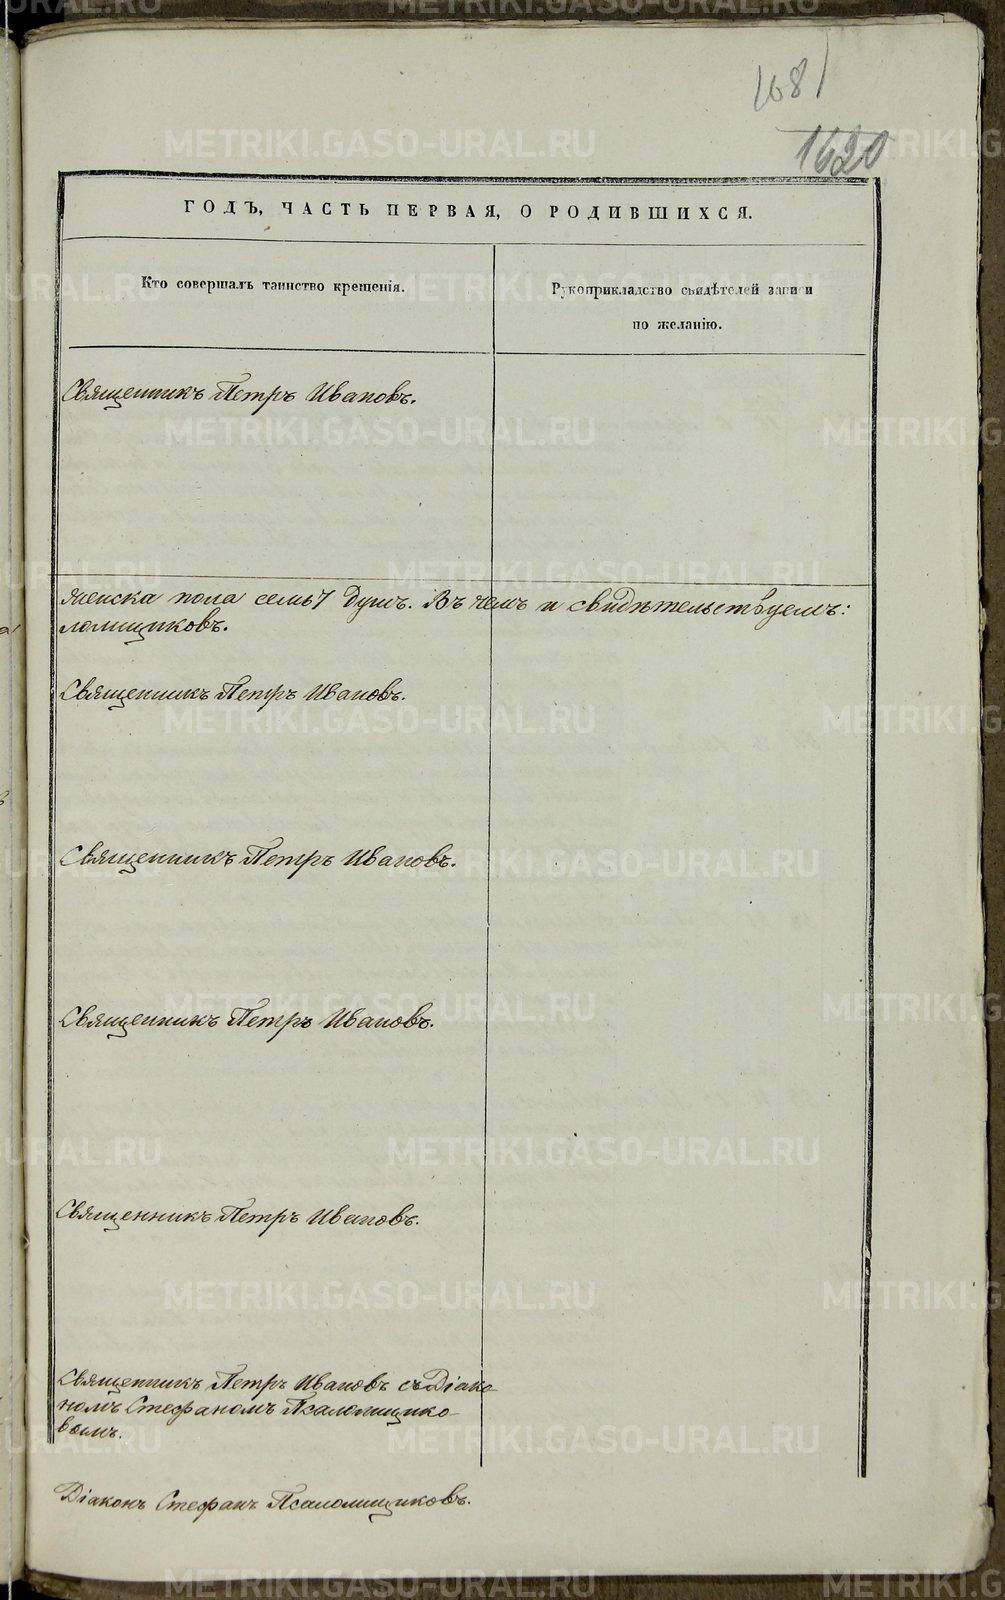 1681
1620
ГОДЪ, ЧАСТЬ ПЕРВАЯ, О РОДИВШИХСЯ.
Кто совершалъ таинство крещенія.
Рукоприкладство свидѣтелей записи
по желанію.
Священникъ Петръ Ивановъ.
женска пола семь 7 душъ. Въ чемъ и свидѣтельствуемъ:
ломщиковъ.
Священникъ Петръ Ивановъ.
Священникъ Петръ Ивановъ.
Священникъ Петръ Ивановъ.
Священникъ Петръ Ивановъ.
Священникъ Петръ Ивановъ съ Діако-
номъ Стефаномъ Псаломщико-
вымъ.
Діаконъ Стефанъ Псаломщиковъ.
METRIKI.GASO-URAL.RU